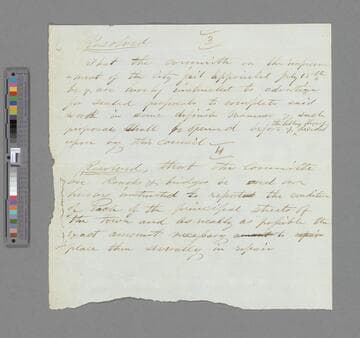 Resolved 3
That the committe on the improve
ment of the City jail appointed July 15th
be & are hereby instructed to advertise
for sealed proposals to complete said
work in some definite manner such
proposals shall be opened before & decided
upon by this council
4
Resolved, that the Committe
on Roads & bridges be and are
hereby instructed to report the condition
of the principal streets of
the town and as nearly as possible the
exact amount necessary to
place them severally in repair